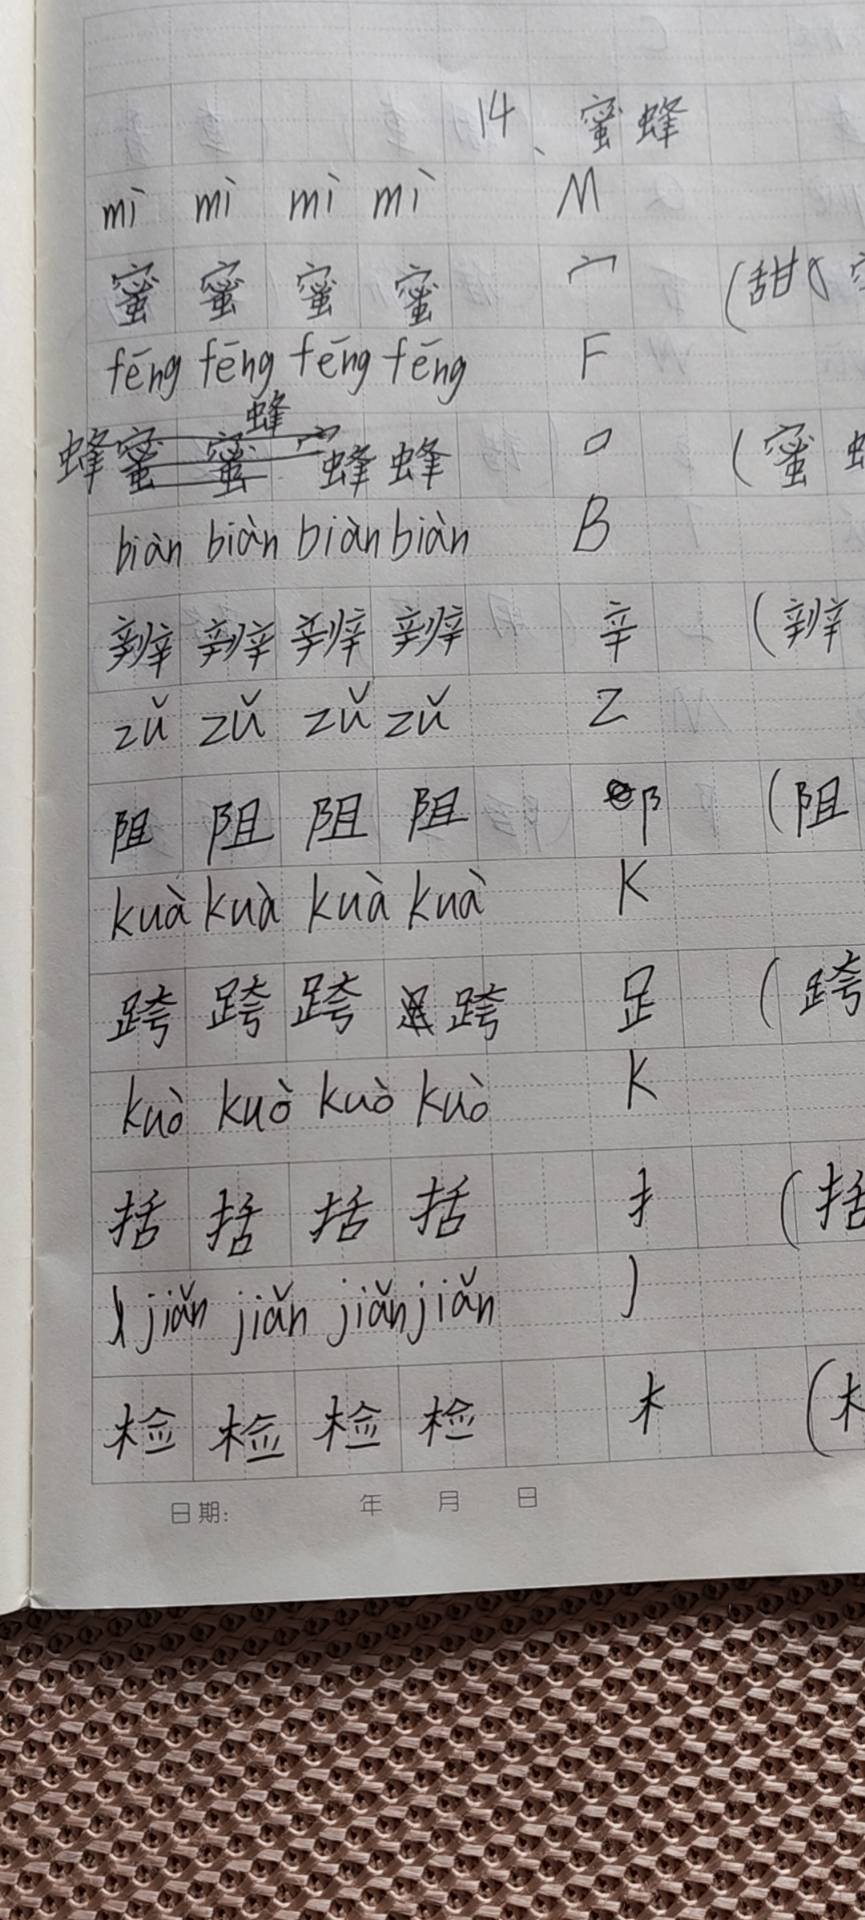 14、蜜蜂
mì mì mì mì M
蜜 蜜 蜜 蜜 宀 (甜
fēng fēng fēng fēng F
蜂
蜂 蜜 蜜 宀 蜂 蜂 (蜜 蜂
biàn biàn biàn biàn B
辨 辨 辨 辨 辛 (辨
zǔ zǔ zǔ zǔ Z
阻 阻 阻 阻 阝 (阻
kuà kuà kuà kuà K
跨 跨 跨 跨 足 (跨
kuò kuò kuò kuò K
括 括 括 括 扌 (括
jiǎn jiǎn jiǎn jiǎn J
检 检 检 检 木 (
日期: 年 月 日